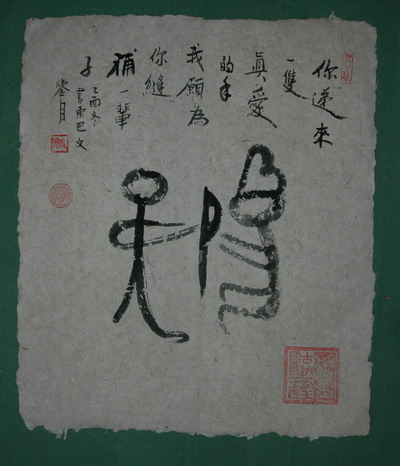 你遞來
一隻
真愛
的手
我願為
你縫
補一輩
子
乙酉冬
書東巴文